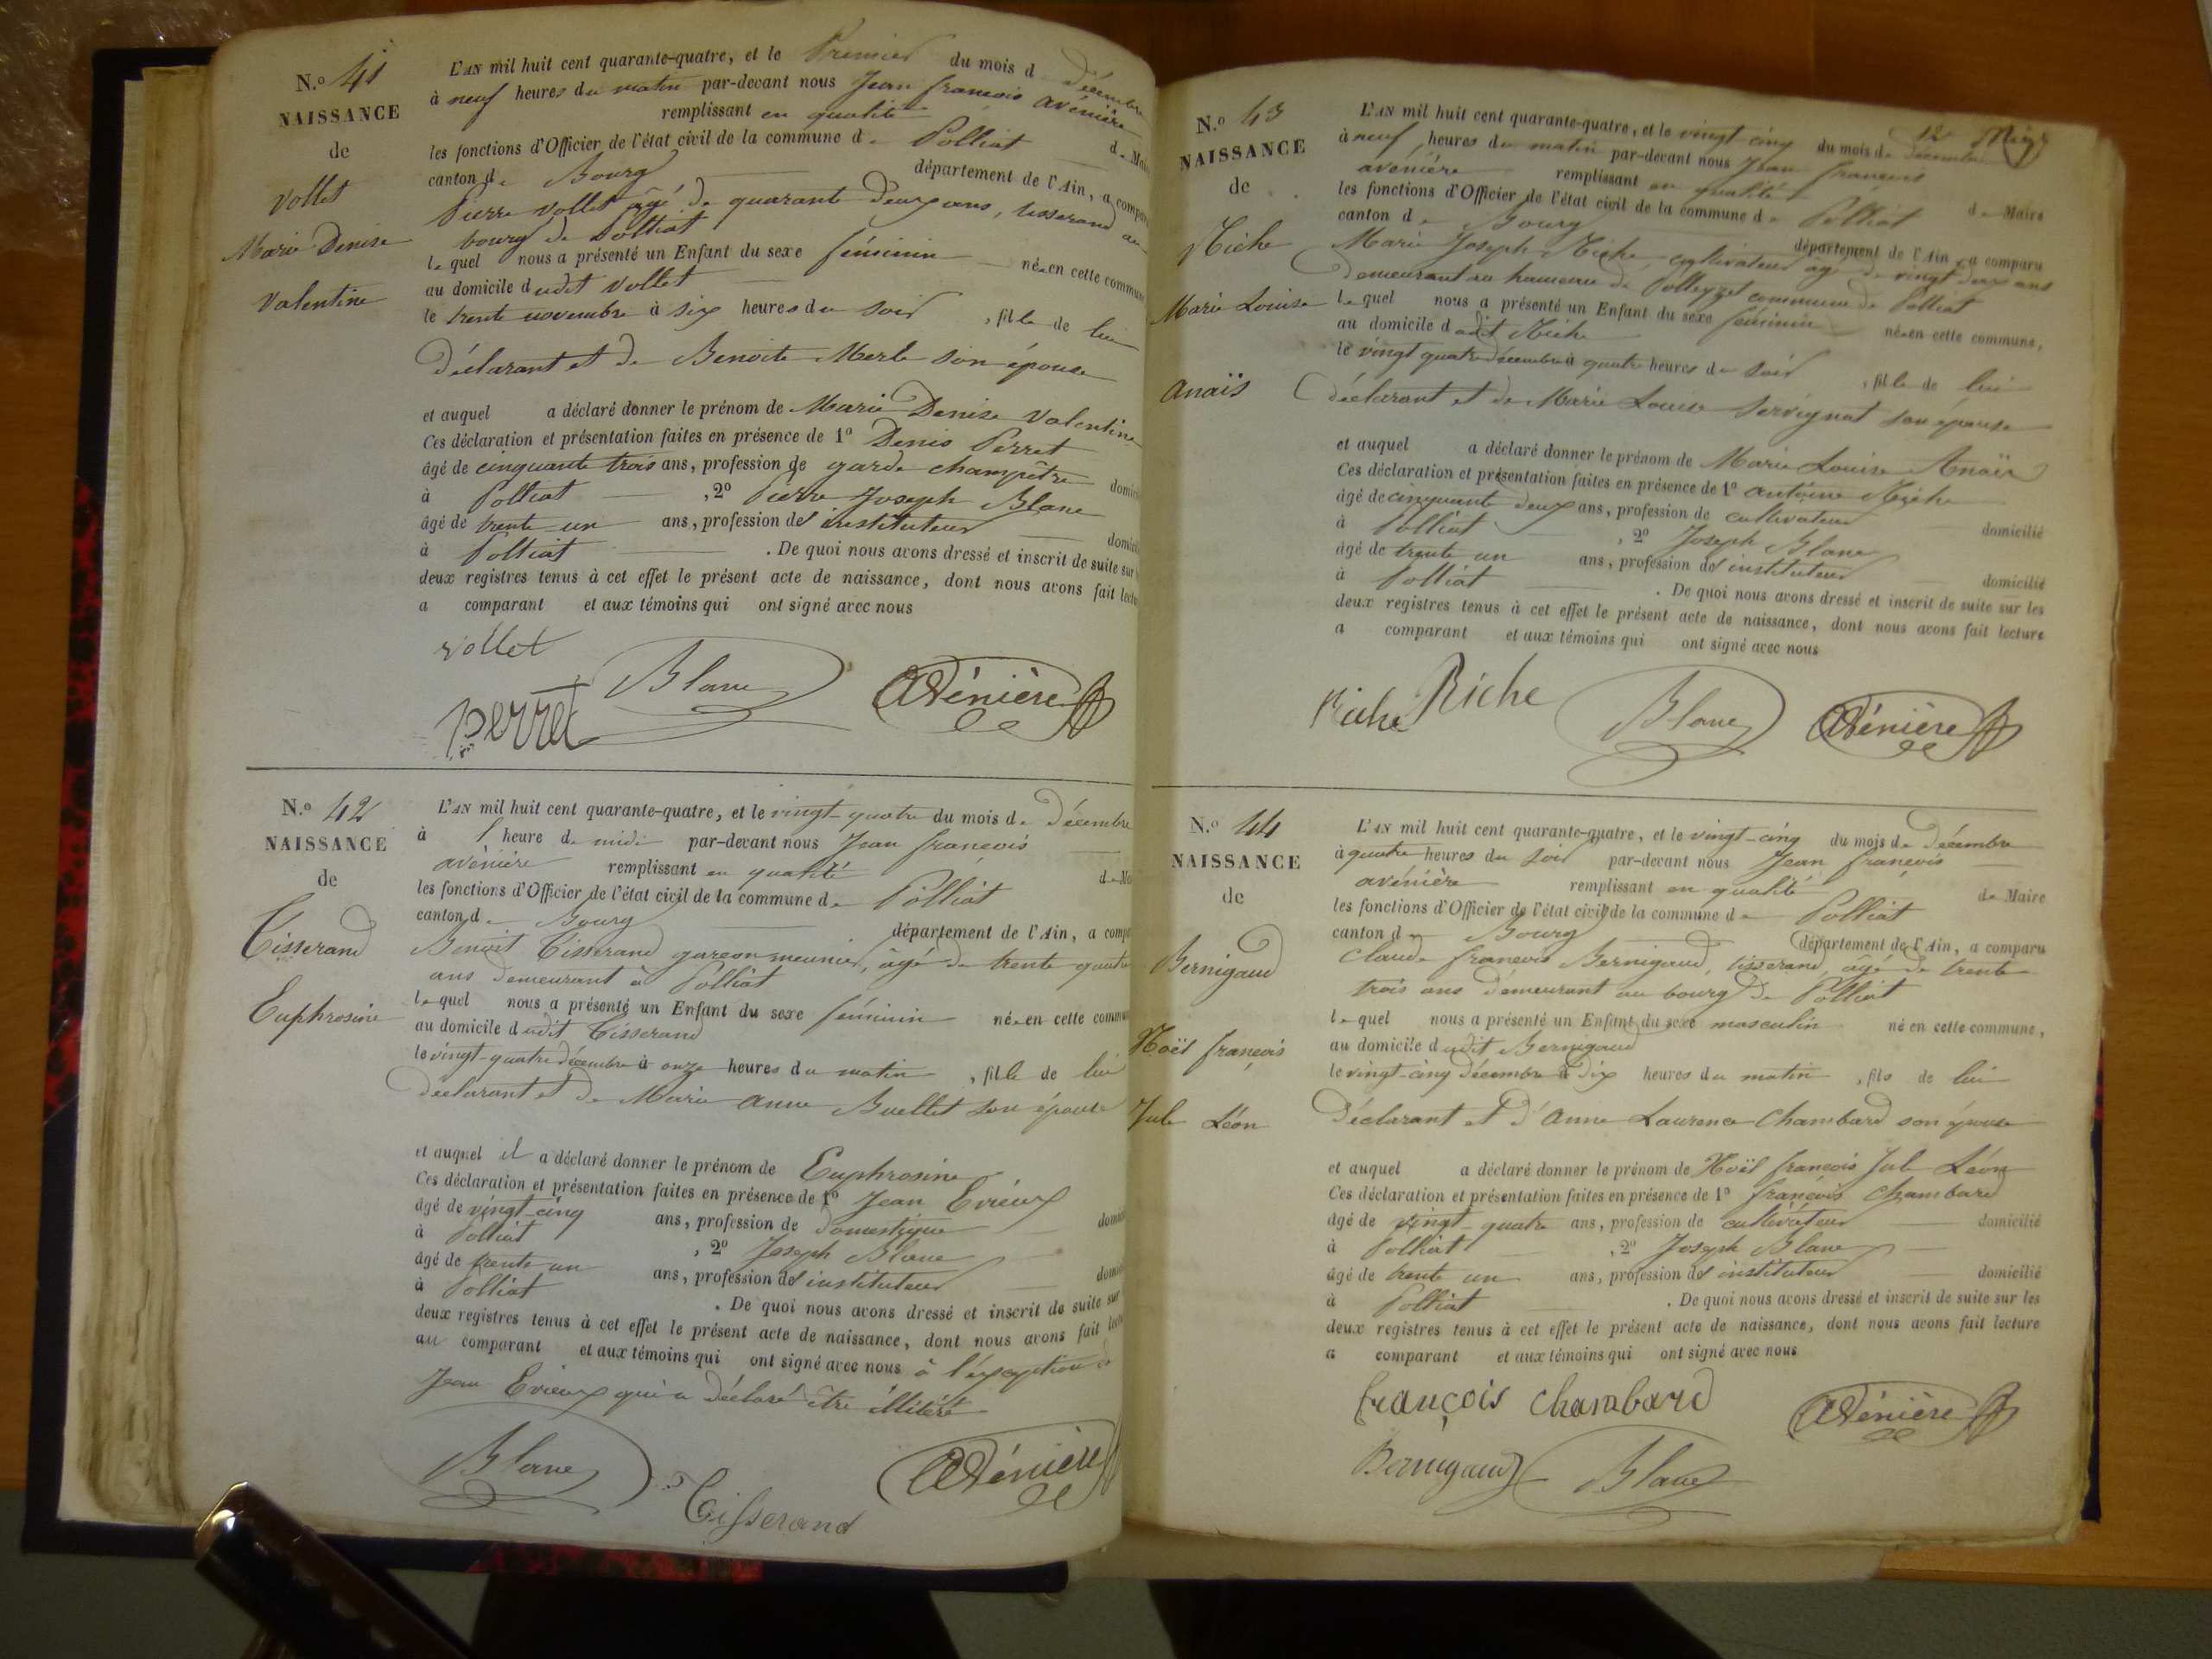 N.º 41
NAISSANCE
de
Vollet
Marie Denise
Valentine
L'AN mil huit cent quarante-quatre, et le Premier du mois d décembre
à neuf heures du matin par-devant nous Jean françois avénière
remplissant en qualité d. Mai
les fonctions d'Officier de l'état civil de la commune de Polliat
canton de Bourg département de l'Ain, a compa
Pierre Vollet âgé de quarante deux ans, tisserand au
bourg de Polliat
lequel nous a présenté un Enfant du sexe féminin née en cette commune
au domicile dudit Vollet
le trente novembre à six heures du soir , fille de lui
déclarant et de Benoite Merle son épouse
et auquel a déclaré donner le prénom de Marie Denise Valentine
Ces déclaration et présentation faites en présence de 1º Denis Perret
âgé de cinquante trois ans, profession de garde champêtre domici
à Polliat , 2º Pierre Joseph Blanc
âgé de trente un ans, profession de instituteur domici
à Polliat . De quoi nous avons dressé et inscrit de suite sur
deux registres tenus à cet effet le présent acte de naissance, dont nous avons fait lectu
a comparant et aux témoins qui ont signé avec nous
vollet
Blanc
Avénière
perret
N.º 42
NAISSANCE
de
Tisserand
Euphrosine
L'AN mil huit cent quarante-quatre, et le vingt-quatre du mois de Décembre
à l'heure de midi par-devant nous Jean françois
avénière remplissant en qualité de Mai
les fonctions d'Officier de l'état civil de la commune de Polliat
canton de Bourg département de l'Ain, a compa
Benoit Tisserand garçon meunier, âgé de trente quatre
ans demeurant à Polliat
lequel nous a présenté un Enfant du sexe féminin née en cette commun
au domicile dudit Tisserand
le vingt-quatre décembre à onze heures du matin , fille de lui
déclarant et de Marie anne Buellet son épouse
et auquel il a déclaré donner le prénom de Euphrosine
Ces déclaration et présentation faites en présence de 1º Jean Evieux
âgé de vingt-cinq ans, profession de domestique domici
à Polliat , 2º Joseph Blanc
âgé de trente un ans, profession de instituteur domici
à Polliat . De quoi nous avons dressé et inscrit de suite sur
deux registres tenus à cet effet le présent acte de naissance, dont nous avons fait lectu
au comparant et aux témoins qui ont signé avec nous à l'exception de
Jean Evieux qui a déclaré être illitéré
Blanc
Tisserand
Avénière
N.º 43
NAISSANCE
de
Riche
Marie Louise
anaïs
12
L'AN mil huit cent quarante-quatre, et le vingt-cinq du mois de décembre
à neuf heures du matin par-devant nous Jean françois
avénière remplissant en qualité de Maire
les fonctions d'Officier de l'état civil de la commune de Polliat
canton de Bourg département de l'Ain, a comparu
Marie Joseph Riche, cultivateur âgé de vingt deux ans
demeurant au hameau de Polleyzet commune de Polliat
lequel nous a présenté un Enfant du sexe féminin née en cette commune,
au domicile dudit Riche
le vingt quatre décembre à quatre heures du soir , fille de lui
déclarant et de Marie Louise Servignat son épouse
et auquel a déclaré donner le prénom de Marie Louise Anaïs
Ces déclaration et présentation faites en présence de 1º antoine Riche
âgé de cinquante deux ans, profession de cultivateur domicilié
à Polliat , 2º Joseph Blanc
âgé de trente un ans, profession de instituteur domicilié
à Polliat . De quoi nous avons dressé et inscrit de suite sur les
deux registres tenus à cet effet le présent acte de naissance, dont nous avons fait lecture
a comparant et aux témoins qui ont signé avec nous
Riche Riche
Blanc
Avénière
N.º 44
NAISSANCE
de
Bernigaud
Noël françois
Jule Léon
L'AN mil huit cent quarante-quatre, et le vingt-cinq du mois de décembre
à quatre heures du soir par-devant nous Jean françois
avénière remplissant en qualité de Maire
les fonctions d'Officier de l'état civil de la commune de Polliat
canton de Bourg département de l'Ain, a comparu
Claude françois Bernigaud, tisserand, âgé de trente
trois ans demeurant au bourg de Polliat
lequel nous a présenté un Enfant du sexe masculin né en cette commune,
au domicile dudit Bernigaud
le vingt-cinq décembre à dix heures du matin , fils de lui
déclarant et d'Anne Laurence Chambard son épouse
et auquel a déclaré donner le prénom de Noël françois Jule Léon
Ces déclaration et présentation faites en présence de 1º françois Chambard
âgé de vingt-quatre ans, profession de cultivateur domicilié
à Polliat , 2º Joseph Blanc
âgé de trente un ans, profession de instituteur domicilié
à Polliat . De quoi nous avons dressé et inscrit de suite sur les
deux registres tenus à cet effet le présent acte de naissance, dont nous avons fait lecture
a comparant et aux témoins qui ont signé avec nous
françois chambard
Avénière
Bernigaud
Blanc